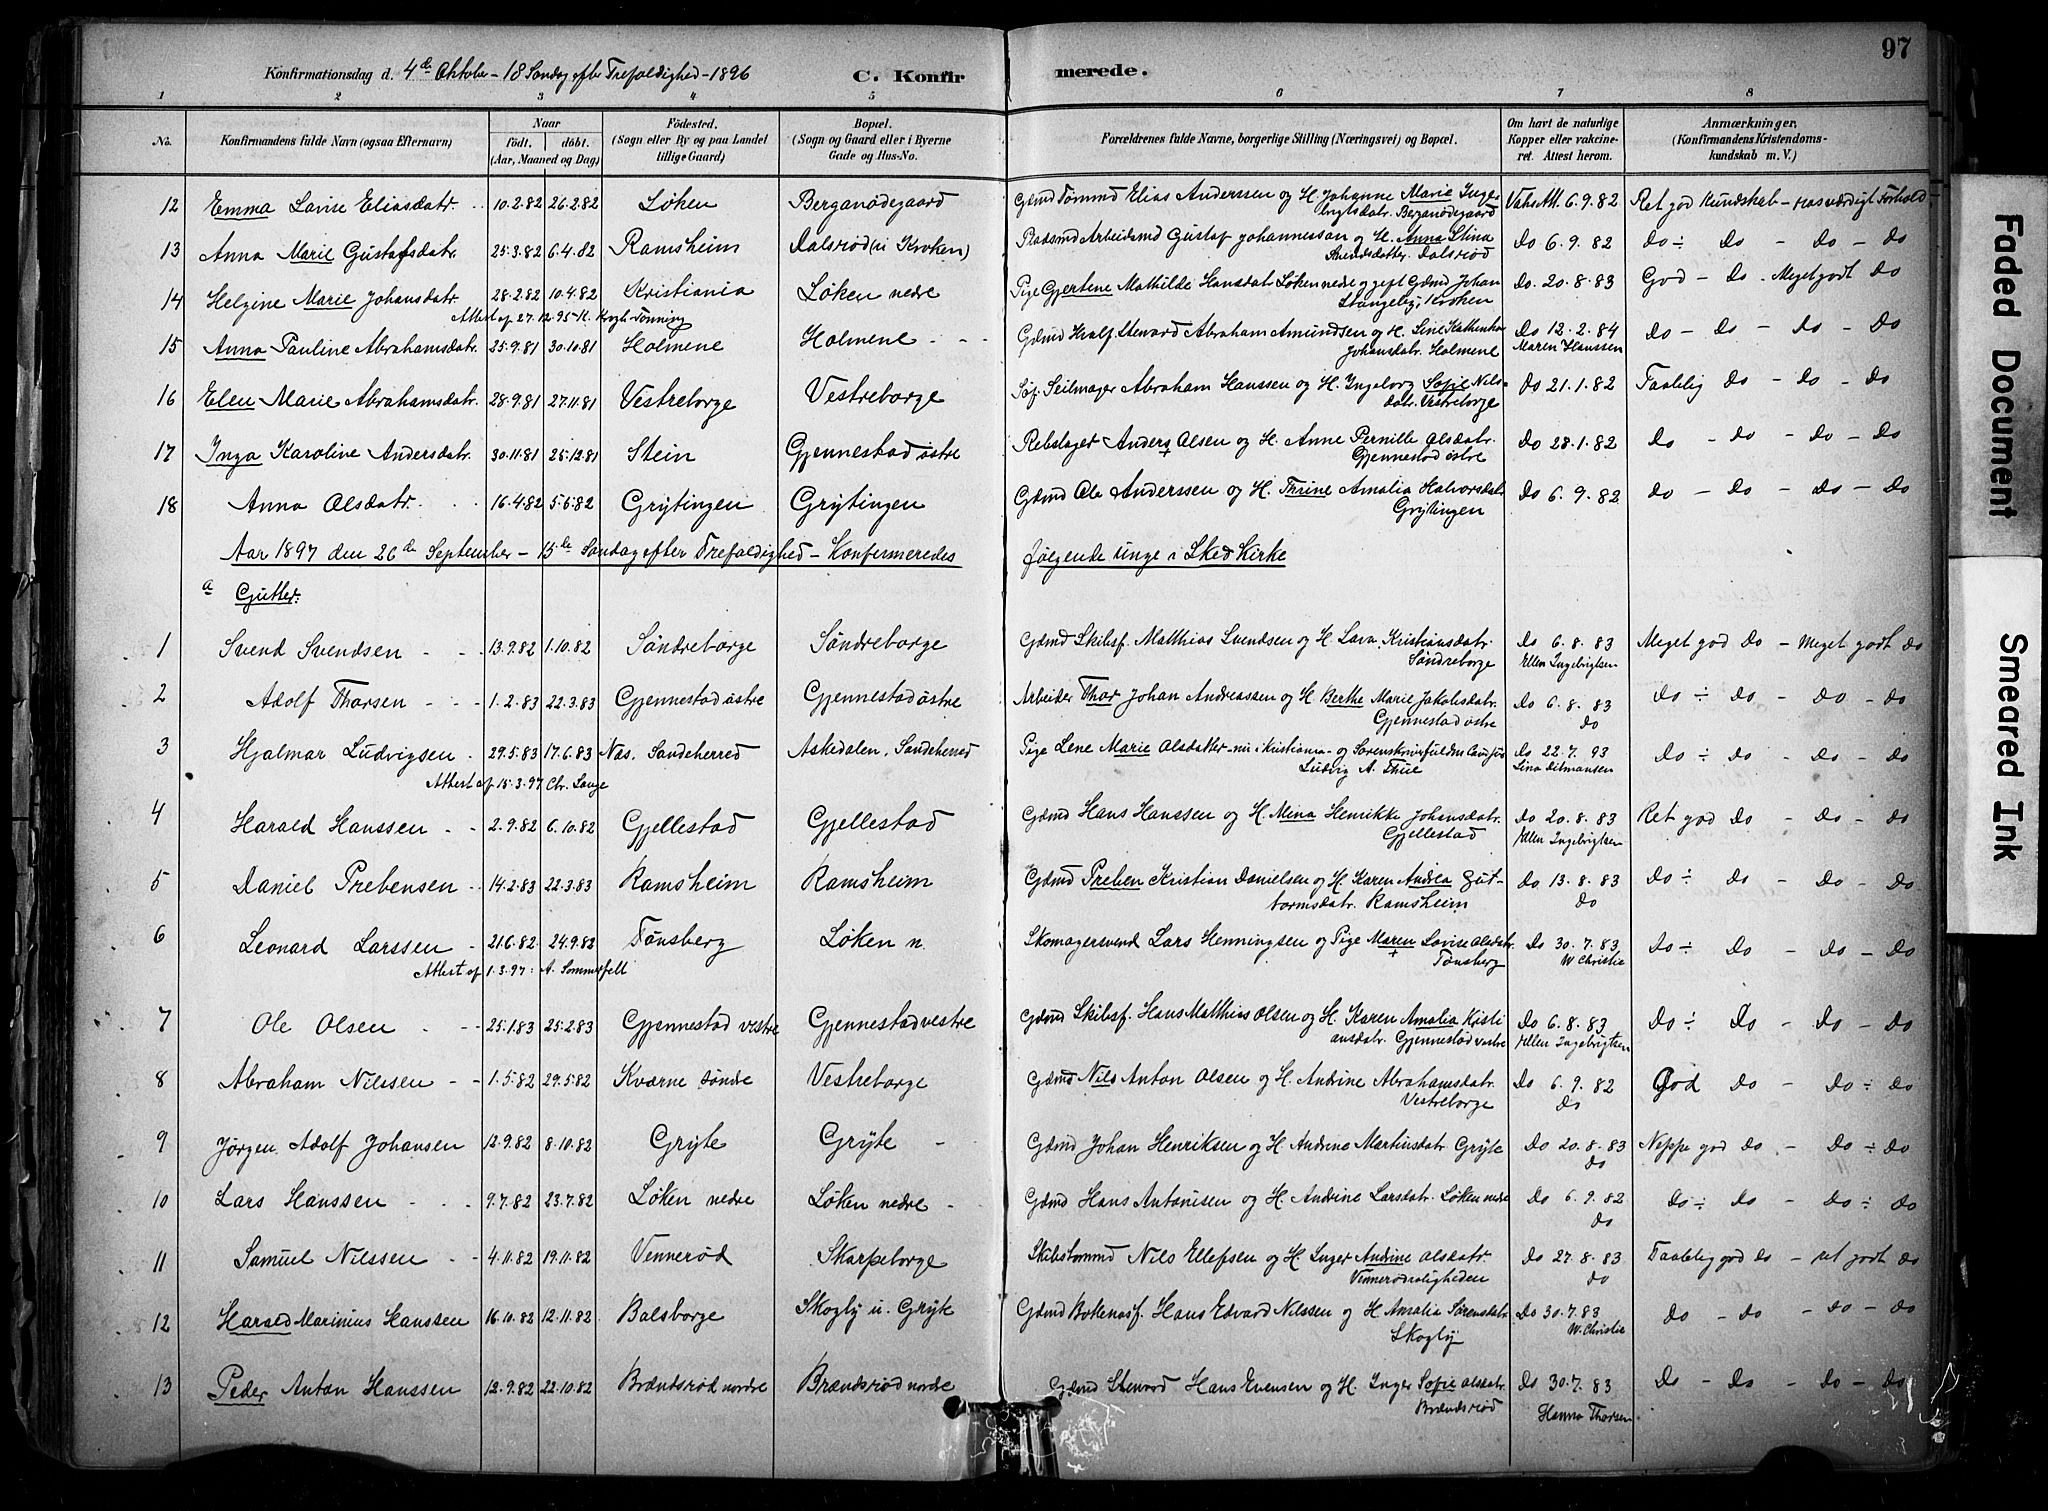 97
Konfirmationsdag d. 4de Oktober - 18 Søndag efter Trefoldighed - 1896 C. Konfirmerede.
1 2 3 4 5 6 7 8
No. Konfirmandens fulde Navn (ogsaa Efternavn) Naar født. døbt. (Aar, Maaned og Dag) Fødested. (Sogn eller By og paa Landet tillige Gaard) Bopæl. (Sogn og Gaard eller i Byerne Gade og Hus-No. Forældrenes fulde Navne, borgerlige Stilling (Næringsvei) og Bopæl. Om havt de naturlige Kopper eller vakcineret. Attest herom. Anmærkninger, (Konfirmandens Kristendomskundskab m. V.)
12 Emma Lovise Eliasdatr. 10.2.82 26.2.82 Løken Berganødegaard Gdmd Tømmd Elias Anderssen og H. Johanne Marie Ingebrigtsdatr. Berganødegaard Vaks Att. 6.9.82 Ret god Kundskab - rosværdigt Forhold
13 Anna Marie Gustafsdatr. 25.3.82 6.4.82 Ramsheim Dalsrød (u Kroken) Pladsmd Arbeidsmd Gustaf Johannesson og H. Anna Stina Svendsdatter. Dalsrød Do 6.9.82 Do ÷ Do - Do - Do
14 Helgine Marie Johansdatr. 28.2.82 10.4.82 Kristiania Løken nedre Pige Gjertine Mathilde Hansdatr Løken nedre og gift Gdmd Johan Stangeby, Kroken Do. 20.8.83 God - Do - Meget godt Do
Attest af 27.12.95 K. Krogh-Tonning
15 Anna Pauline Abrahamsdatr. 25.9.81 30.10.81 Holmene Holmene Gdmd Kralf. Steward Abraham Amundsen og H. Line Kathinka Johansdatr. Holmene Do 12.2.84 Maren Hanssen Do - Do - Do - Do
16 Elen Marie Abrahamsdatr. 28.9.81 27.11.81 Vestreborge Vestreborge Søf. Seilmager Abraham Hanssen og H. Ingeborg Sofie Nilsdatr. Vestreborge Do 21.1.82 Taalelig Do - Do - Do
17 Inga Karoline Andersdatr. 30.11.81 25.12.81 Stein Gjennestad østre Rebslager Anders Olsen og H. Anne Pernille Olsdatr. Gjennestad østre Do 28.1.82 Do - Do - Do - Do
18 Anna Olsdatr. 16.4.82 5.6.82 Grytingen Grytingen Gdmd Ole Anderssen og H. Thrine Amalia Halvorsdatr Grytingen Do 6.9.82 Do - Do - Do - Do
Aar 1897 den 26de September - 15de Søndag efter Trefoldighed - Konfirmeredes følgende unge i Skee Kirke
a Gutter:
1 Svend Svendsen 13.9.82 1.10.82 Søndreborge Søndreborge Gdmd Skibsf. Matthias Svendsen og H. Lava Kristiansdatr. Søndreborge Do 6.8.83 Ellen Ingebrigtsen Meget god Do - Meget godt Do
2 Adolf Thorsen 1.2.83 22.3.83 Gjennestad østre Gjennestad østre Arbeider Thor Johan Andreassen og H Berthe Marie Jakobsdatr. Gjennestad østre Do 6.8.83 Do Do ÷ Do - Do - Do
3 Hjalmar Ludvigsen 29.5.83 17.6.83 Nas. Sandeherred Askedalen. Sandeherred Pige Lene Marie Olsdatter - nu i Kristiania - og Sorenskriverfuldm Cand jur Ludvig A. Thue Do 22.7.93 Lina Ditmansen Do ÷ Do - Do - Do
Attest af 15.3.97 Chr. Lange
4 Harald Hanssen 2.9.82 6.10.82 Gjellestad Gjellestad Gdmd Hans Hanssen og H. Mina Henrikke Johansdatr. Gjellestad Do 20.8.83 Ellen Ingebrigtsen Ret god Do - Do - Do
5 Daniel Prebensen 14.2.83 22.3.83 Ramsheim Ramsheim Gdmd Preben Kristian Danielsen og H. Karen Andrea Guttormsdatr. Ramsheim Do 13.8.83 Do Do ÷ Do - Do - Do
6 Leonard Larssen 21.6.82 24.9.82 Tønsberg Løken n. Skomagersvend Lars Henningsen og Pige Maren Lovise Olsdatr. Tønsberg Do 30.7.83 W Christie Do ÷ Do - Do - Do
Attest af 1.3.97: A. Sommerfelt
7 Ole Olsen 25.1.83 25.2.83 Gjennestad vestre Gjennestad vestre Gdmd Skibsf. Hans Matthias Olsen og H. Karen Amalia Kristiansdatr. Gjennestad vestre Do 6.8.83 Ellen Ingebrigtsen Do ÷ Do - Do - Do
8 Abraham Nilssen 1.5.82 29.5.82 Kværne søndre Vestreborge Gdmd Nils Anton Olsen og H. Andrine Abrahamsdatr. Vestreborge Do 6.9.82 Do God Do - Do ÷ Do
9 Jørgen Adolf Johansen 12.9.82 8.10.82 Gryte Gryte Gdmd Johan Henriksen og H Andrine Martinsdatr Gryte Do 20.8.83 Do Neppe god Do - Do ÷ Do
10 Lars Hanssen 9.7.82 23.7.82 Løken nedre Løken nedre Gdmd Hans Antonisen og H. Andrine Larsdatr. Løken nedre Do 6.9.82 Do Do ÷ Do - Do ÷ Do
11 Samuel Nilssen 4.11.82 19.11.82 Vennerød Skarpeborge Skibstømmd Nils Ellefsen og H. Inger Andrine Olsdatr. Vennerødroligheden Do 27.8.83 Do Taalelig god Do - ret godt Do
12 Harald Marinius Hanssen 16.10.82 12.11.82 Bolsborge Skogly u. Gryte Gdmd Botenasf. Hans Edvard Nilssen og H Amalia Sørensdatr. Skogly Do 30.7.83 W. Christie Do - Do - Do - Do
13 Peder Anton Hanssen 12.9.82 22.10.82 Brændsrød nordre Brændsrød nordre Gdmd Steward Hans Evensen og H. Inger Sofie Olsdatr. Brændsrød Do 30.7.83 Hanna Thorsen Do - Do - Do - Do
Faded Document
Smeared Ink